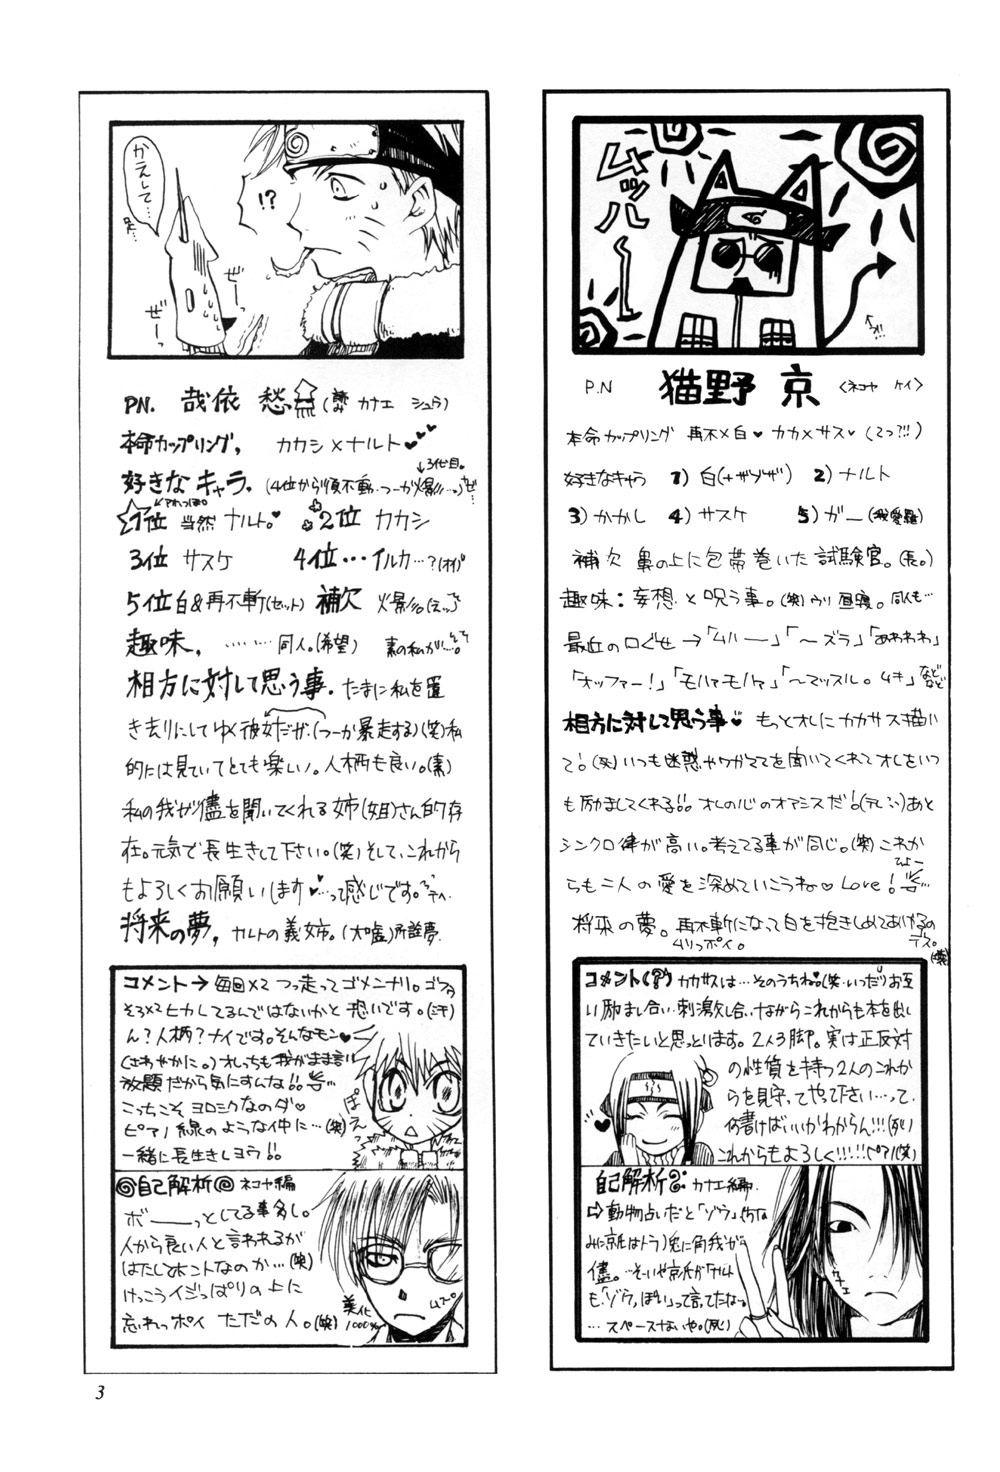 ムッハー
P.N 猫野 京 <ネコヤ ケイ>
本命カップリング 再不×白♥ カカ×サス♥ (てっ?!!)
好きなキャラ 1) 白(+ザブザ) 2) ナルト
3) かかし 4) サスケ 5) ガー(我愛羅)
補欠 鼻の上に包帯巻いた試験官。(長。)
趣味:妄想と呪う事。(笑)ウリ 昼寝。同人…
最近の口ぐせ→「ムハー」「〜ズラ」「あわわわ」
「オッファー!」「モハァモハァ」「〜マッスル。ムキ」などなど
相方に対して思う事♥ もっとオレにカカサス描い
て!(死)いつも迷惑やワガママを聞いてくれてオレをいつ
も励ましてくれる!!オレの心のオアシスだ!(テレ)あと
シンクロ律が高い。考えてる事が同じ。(笑)これか
らも二人の愛を深めていこうね♡Love!
将来の夢。再不斬になって白を抱きしめてあげるの
デス。(笑)
ムリっポイ。
コメント(?) カカサスは…そのうちね♥(笑・いつだ)お互
い励まし合い・刺激し合いながらこれからも本を出し
ていきたいと思っとります。2人3脚。実は正反対
の性質を持つ2人のこれか
らを見守ってやって下さい…って、
何書けばいいかわからん!!!(死)
これからもよろしく!!!!!(ピアノ)(笑)
自己解析 カナエ編。
⇨動物占いだと「ゾウ」(ちな
みに京氏はトラ)兎に角我が
儘。…そーいや京氏が「ナルト
も「ゾウ」ぽい」って言ってたな。
…スペースないや。(死)
カナエ
かえして…
!?
ぜーっ
ぜーっ
PN. 哉依 愁(読み カナエ シュウ)
本命カップリング, カカシ×ナルト♥♥♥
↓3代目。
好きなキャラ。(4位から順不動・つーか火影…。)
1位 当然 ナルト。♥ 2位 カカシ
3位 サスケ 4位…イルカ…?(オイ)
5位 白&再不斬(セット) 補欠 火影(えっ)
趣味, ………同人。(希望) 素の私が…。
相方に対して思う事. たまに私を置
き去りにしてゆく彼女だが、(つーか暴走する)(笑)私
的には見ていてとても楽しい。人柄も良い。(素)
私の我が儘を聞いてくれる姉(姐)さん的存
在。元気で長生きして下さい。(笑)そして、これから
もよろしくお願いします♥…って感じです。
将来の夢, ナルトの義姉。(大嘘)所詮夢.
コメント→毎回××2つっ走ってゴメンナリ。ゴフッ
そろ×2ヒカレてるんではないかと恐いです。(汗)
ん?人柄?ナイです。そんなモン♥
(さわやかに。)オレっちも我がまま言い
放題だから気にすんな!!
こっちこそヨロシクなのダ♡
ピアノ線のような仲に…(笑)
一緒に長生きしヨウ!!
ぽえっ
自己解析 ネコヤ編
ボーーっとしてる事多し。
人から良い人と言われるが
はたしてホントなのか…(笑)
けっこうイジっぱりの上に
忘れっポイ ただの人。(笑)
美化
1000%
3